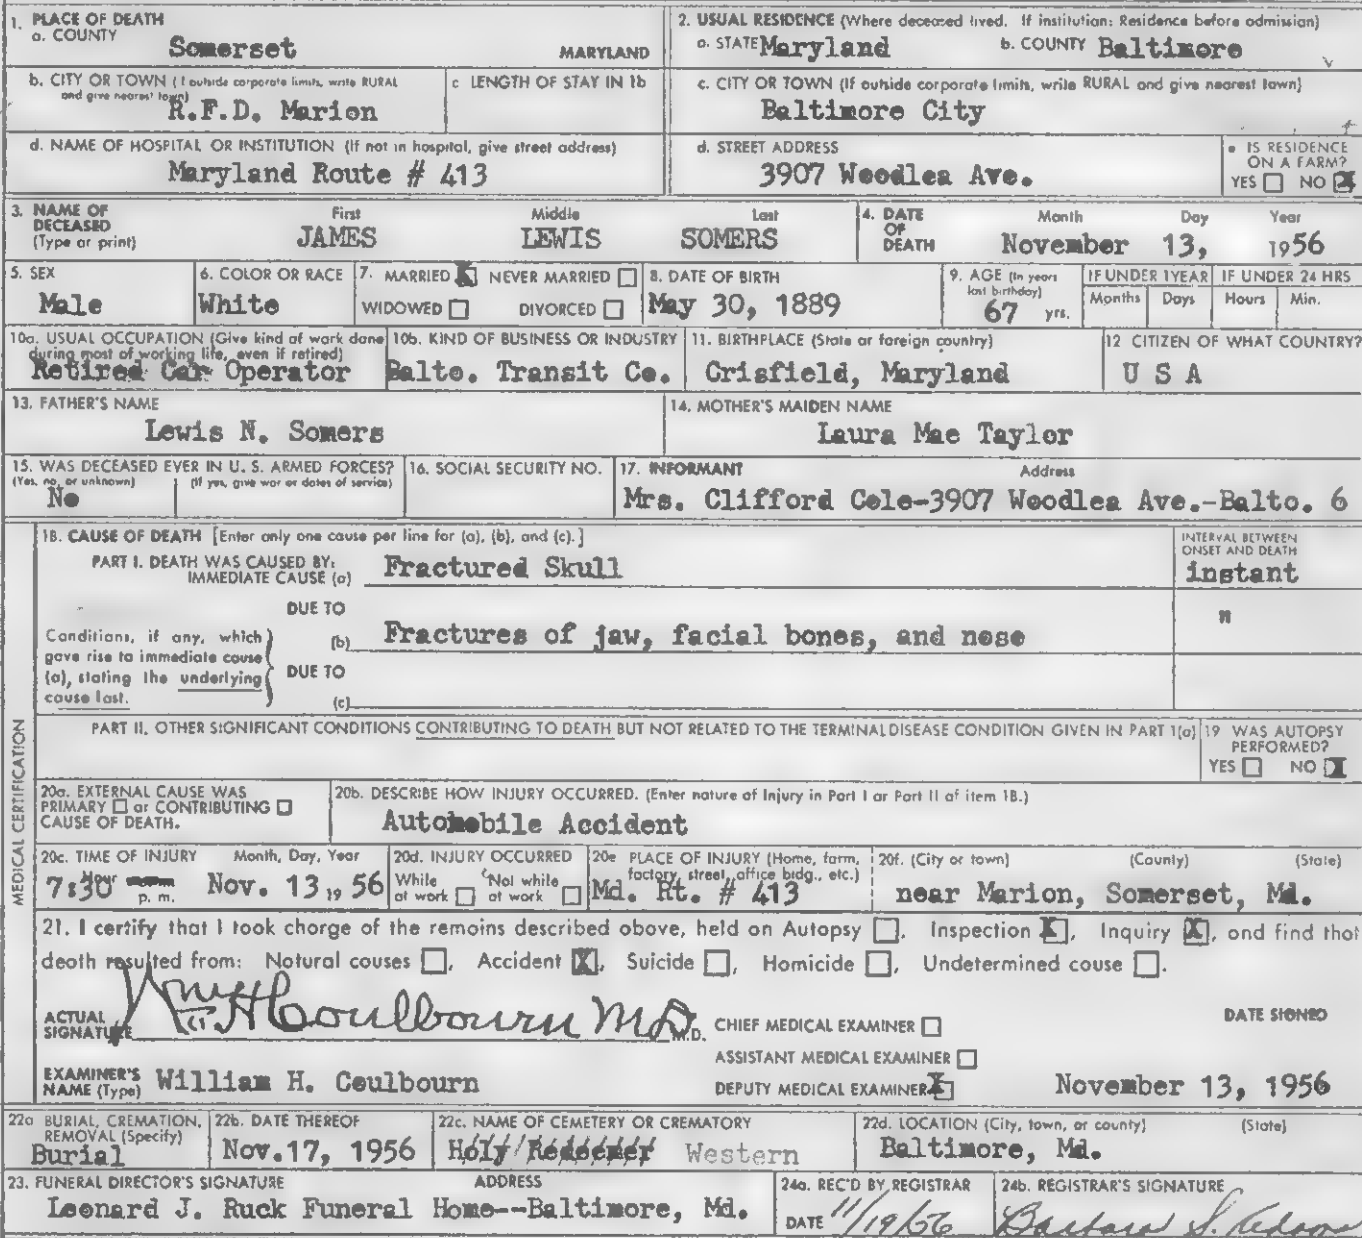 1. PLACE OF DEATH
a. COUNTY
Somerset MARYLAND
2. USUAL RESIDENCE (Where deceased lived. If institution: Residence before admission)
a. STATE Maryland b. COUNTY Baltimore
b. CITY OR TOWN (If outside corporate limits, write RURAL and give nearest town)
R.F.D. Marion
c LENGTH OF STAY IN 1b
c. CITY OR TOWN (If outside corporate limits, write RURAL and give nearest town)
Baltimore City
d. NAME OF HOSPITAL OR INSTITUTION (If not in hospital, give street address)
Maryland Route # 413
d. STREET ADDRESS
3907 Woodlea Ave.
e IS RESIDENCE ON A FARM?
YES NO X
3. NAME OF DECEASED (Type or print)
First Middle Last
JAMES LEWIS SOMERS
4. DATE OF DEATH
Month Day Year
November 13, 1956
5. SEX
Male
6. COLOR OR RACE
White
7. MARRIED X NEVER MARRIED
WIDOWED DIVORCED
8. DATE OF BIRTH
May 30, 1889
9. AGE (In years last birthday)
67 yrs.
IF UNDER 1 YEAR IF UNDER 24 HRS
Months Days Hours Min.
10a. USUAL OCCUPATION (Give kind of work done during most of working life, even if retired)
Retired Car Operator
10b. KIND OF BUSINESS OR INDUSTRY
Balto. Transit Co.
11. BIRTHPLACE (State or foreign country)
Crisfield, Maryland
12 CITIZEN OF WHAT COUNTRY?
U S A
13. FATHER'S NAME
Lewis N. Somers
14. MOTHER'S MAIDEN NAME
Laura Mae Taylor
15. WAS DECEASED EVER IN U. S. ARMED FORCES?
(Yes, no, or unknown) (If yes, give war or dates of service)
No
16. SOCIAL SECURITY NO.
17. INFORMANT Address
Mrs. Clifford Cole-3907 Woodlea Ave.-Balto. 6
MEDICAL CERTIFICATION
18. CAUSE OF DEATH [Enter only one cause per line for (a), (b), and (c).]
INTERVAL BETWEEN ONSET AND DEATH
PART I. DEATH WAS CAUSED BY:
IMMEDIATE CAUSE (a) Fractured Skull instant
DUE TO "
Conditions, if any, which gave rise to immediate cause (a), stating the underlying cause last.
(b) Fractures of jaw, facial bones, and nose
DUE TO
(c)
PART II. OTHER SIGNIFICANT CONDITIONS CONTRIBUTING TO DEATH BUT NOT RELATED TO THE TERMINAL DISEASE CONDITION GIVEN IN PART 1(a)
19 WAS AUTOPSY PERFORMED?
YES NO X
20a. EXTERNAL CAUSE WAS
PRIMARY or CONTRIBUTING
CAUSE OF DEATH.
20b. DESCRIBE HOW INJURY OCCURRED. (Enter nature of Injury in Part I or Part II of item 18.)
Automobile Accident
20c. TIME OF INJURY Month, Day, Year
Hour
7:30 p. m. Nov. 13 19 56
20d. INJURY OCCURRED
While at work Not while at work
20e PLACE OF INJURY (Home, farm, factory, street, office bldg., etc.)
Md. Rt. # 413
20f. (City or town) (County) (State)
near Marion, Somerset, Md.
21. I certify that I took charge of the remains described above, held on Autopsy , Inspection X , Inquiry X , and find that
death resulted from: Natural causes , Accident X , Suicide , Homicide , Undetermined cause .
ACTUAL SIGNATURE Wm H Coulbourn M.D. M.D.
CHIEF MEDICAL EXAMINER
DATE SIGNED
ASSISTANT MEDICAL EXAMINER
EXAMINER'S NAME (Type) William H. Coulbourn
DEPUTY MEDICAL EXAMINER X November 13, 1956
22a BURIAL, CREMATION, REMOVAL (Specify)
Burial
22b. DATE THEREOF
Nov.17, 1956
22c. NAME OF CEMETERY OR CREMATORY
Holy Redeemer Western
22d. LOCATION (City, town, or county) (State)
Baltimore, Md.
23. FUNERAL DIRECTOR'S SIGNATURE ADDRESS
Leonard J. Ruck Funeral Home--Baltimore, Md.
24a. REC'D BY REGISTRAR
DATE 11/19/56
24b. REGISTRAR'S SIGNATURE
Barbara S. Adams